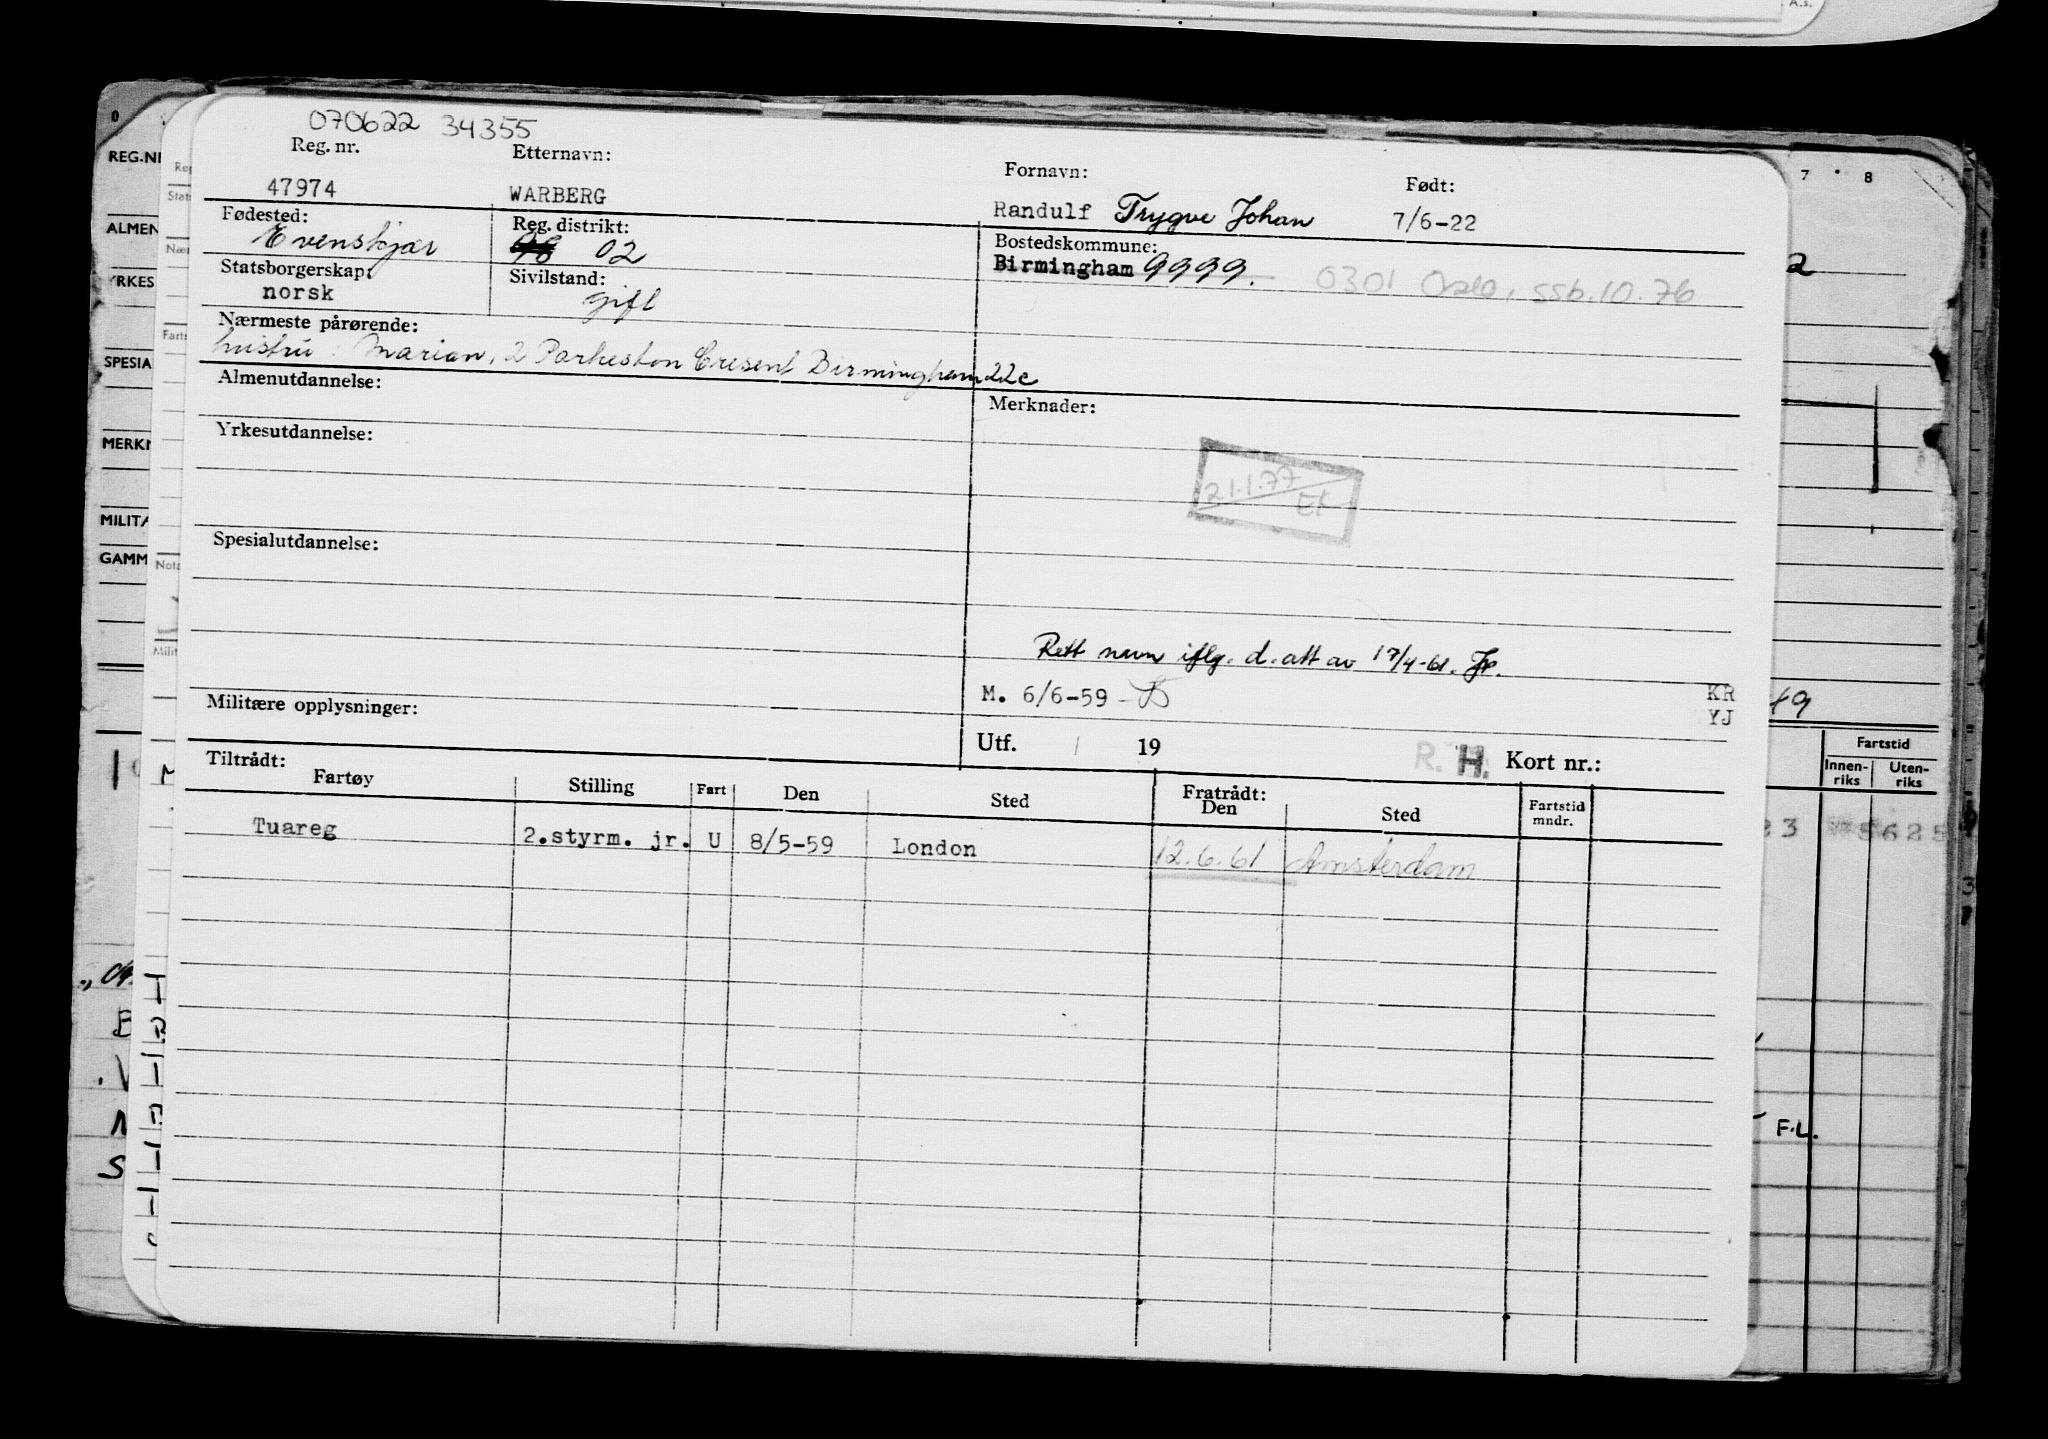 A.s.
070622 34355
Reg. nr. Etternavn: Fornavn: Født:
47974 WARBERG Randulf Trygve Johan 7/6-22
Fødested: Reg. distrikt: Bostedskommune:
Evenskjær 98 02 Birmingham 9999. 0301 Oslo, ssb.10.76
Statsborgerskap: Sivilstand:
norsk gift
Nærmeste pårørende:
hustru: Marian, 2 Parkeston Cresent Birmingham 22c
Almenutdannelse: Merknader:
Yrkesutdannelse:
21.1.77
EK
Spesialutdannelse:
Rett navn iflg. d. att av 17/4-61.
M. 6/6-59
KR
YJ
Militære opplysninger:
Utf. / 19 R. H. Kort nr.:
Tiltrådt: Fratrådt:
Fartøy Stilling Fart Den Sted Den Sted Fartstid mndr.
Tuareg 2.styrm. jr. U 8/5-59 London 12.6.61 Amsterdam
0
REG.N
ALMEN
YRKES
SPESIA
MERKN
MILITÆ
GAMM
Reg
Stats
Nær
Farts
Nota
Milit
7 8
2
49
Fartstid
Innen-
riks
Uten-
riks
23 5625
F.L.